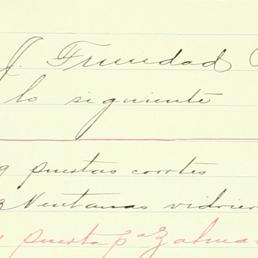 J. Trinidad
lo siguiente
puertas cortes
Ventanas vidrier
puerta pª